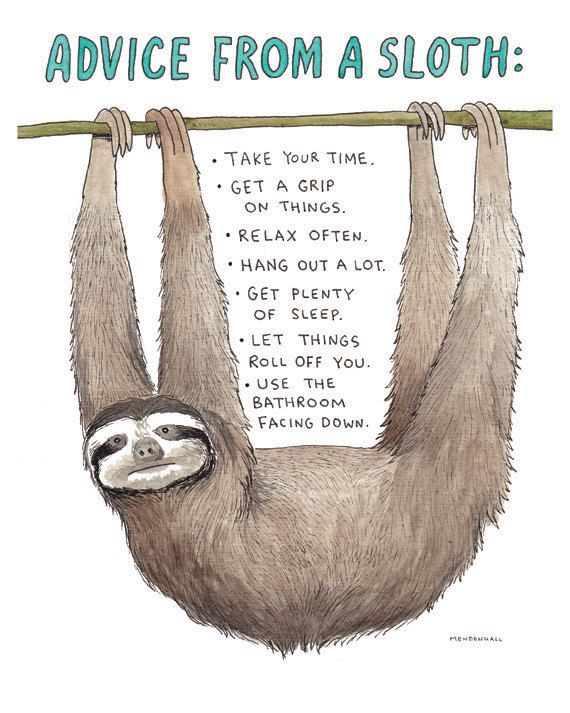 ADVICE FROM A SLOTH:
• TAKE YOUR TIME.
• GET A GRIP
ON THINGS.
• RELAX OFTEN.
• HANG OUT A LOT.
• GET PLENTY
OF SLEEP.
• LET THINGS
ROLL OFF YOU.
• USE THE
BATHROOM
FACING DOWN.
MENDENHALL